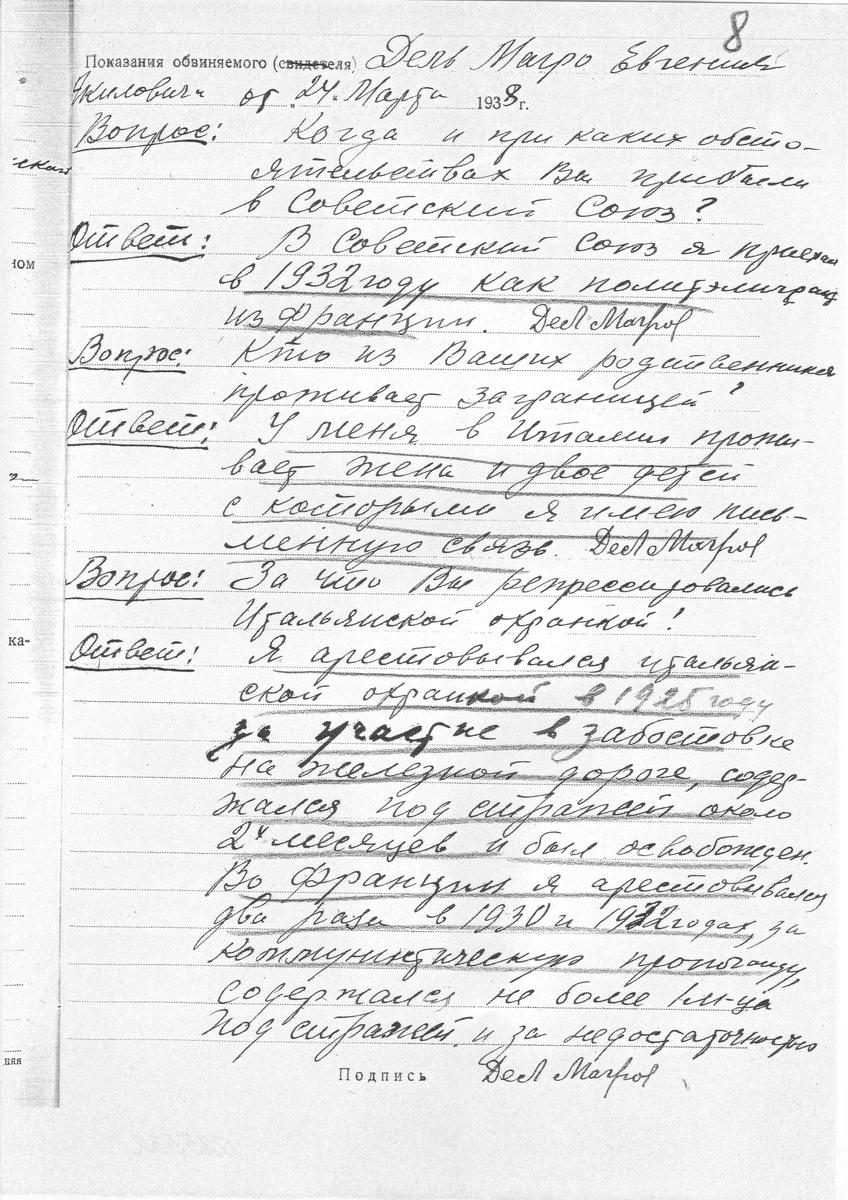 8
Показания обвиняемого (свидетеля) Дель Магро Евгения
Ахиловича от „24" Марта 1938 г.
ской
Вопрос: Когда и при каких обсто-
ятельствах Вы прибыли
в Советский Союз?
Ответ: В Советский Союз я приехал
ном
в 1932 году как политэмигрант
из Франции. Дел Магро
Вопрос: Кто из Ваших родственников
проживает заграницей?
Ответ: У меня в Италии прожи-
вает жена и двое детей
с которыми я имею пись-
менную связь. Дел Магро
Вопрос: За что Вы репрессировались
Итальянской охранкой!
ка-
Ответ: Я арестовывался итальян-
ской охранкой в 1925 году
за участие в забостовке
на железной дороге, содер-
жался под стражей около
2х месяцев и был освобожден.
Во Франции я арестовывался
два раза в 1930 и 1932 годах, за
коммунистическую пропаганду,
содержался не более 1 м-ца
под стражей. и за недостаточностью
няя
Подпись Дел Магро